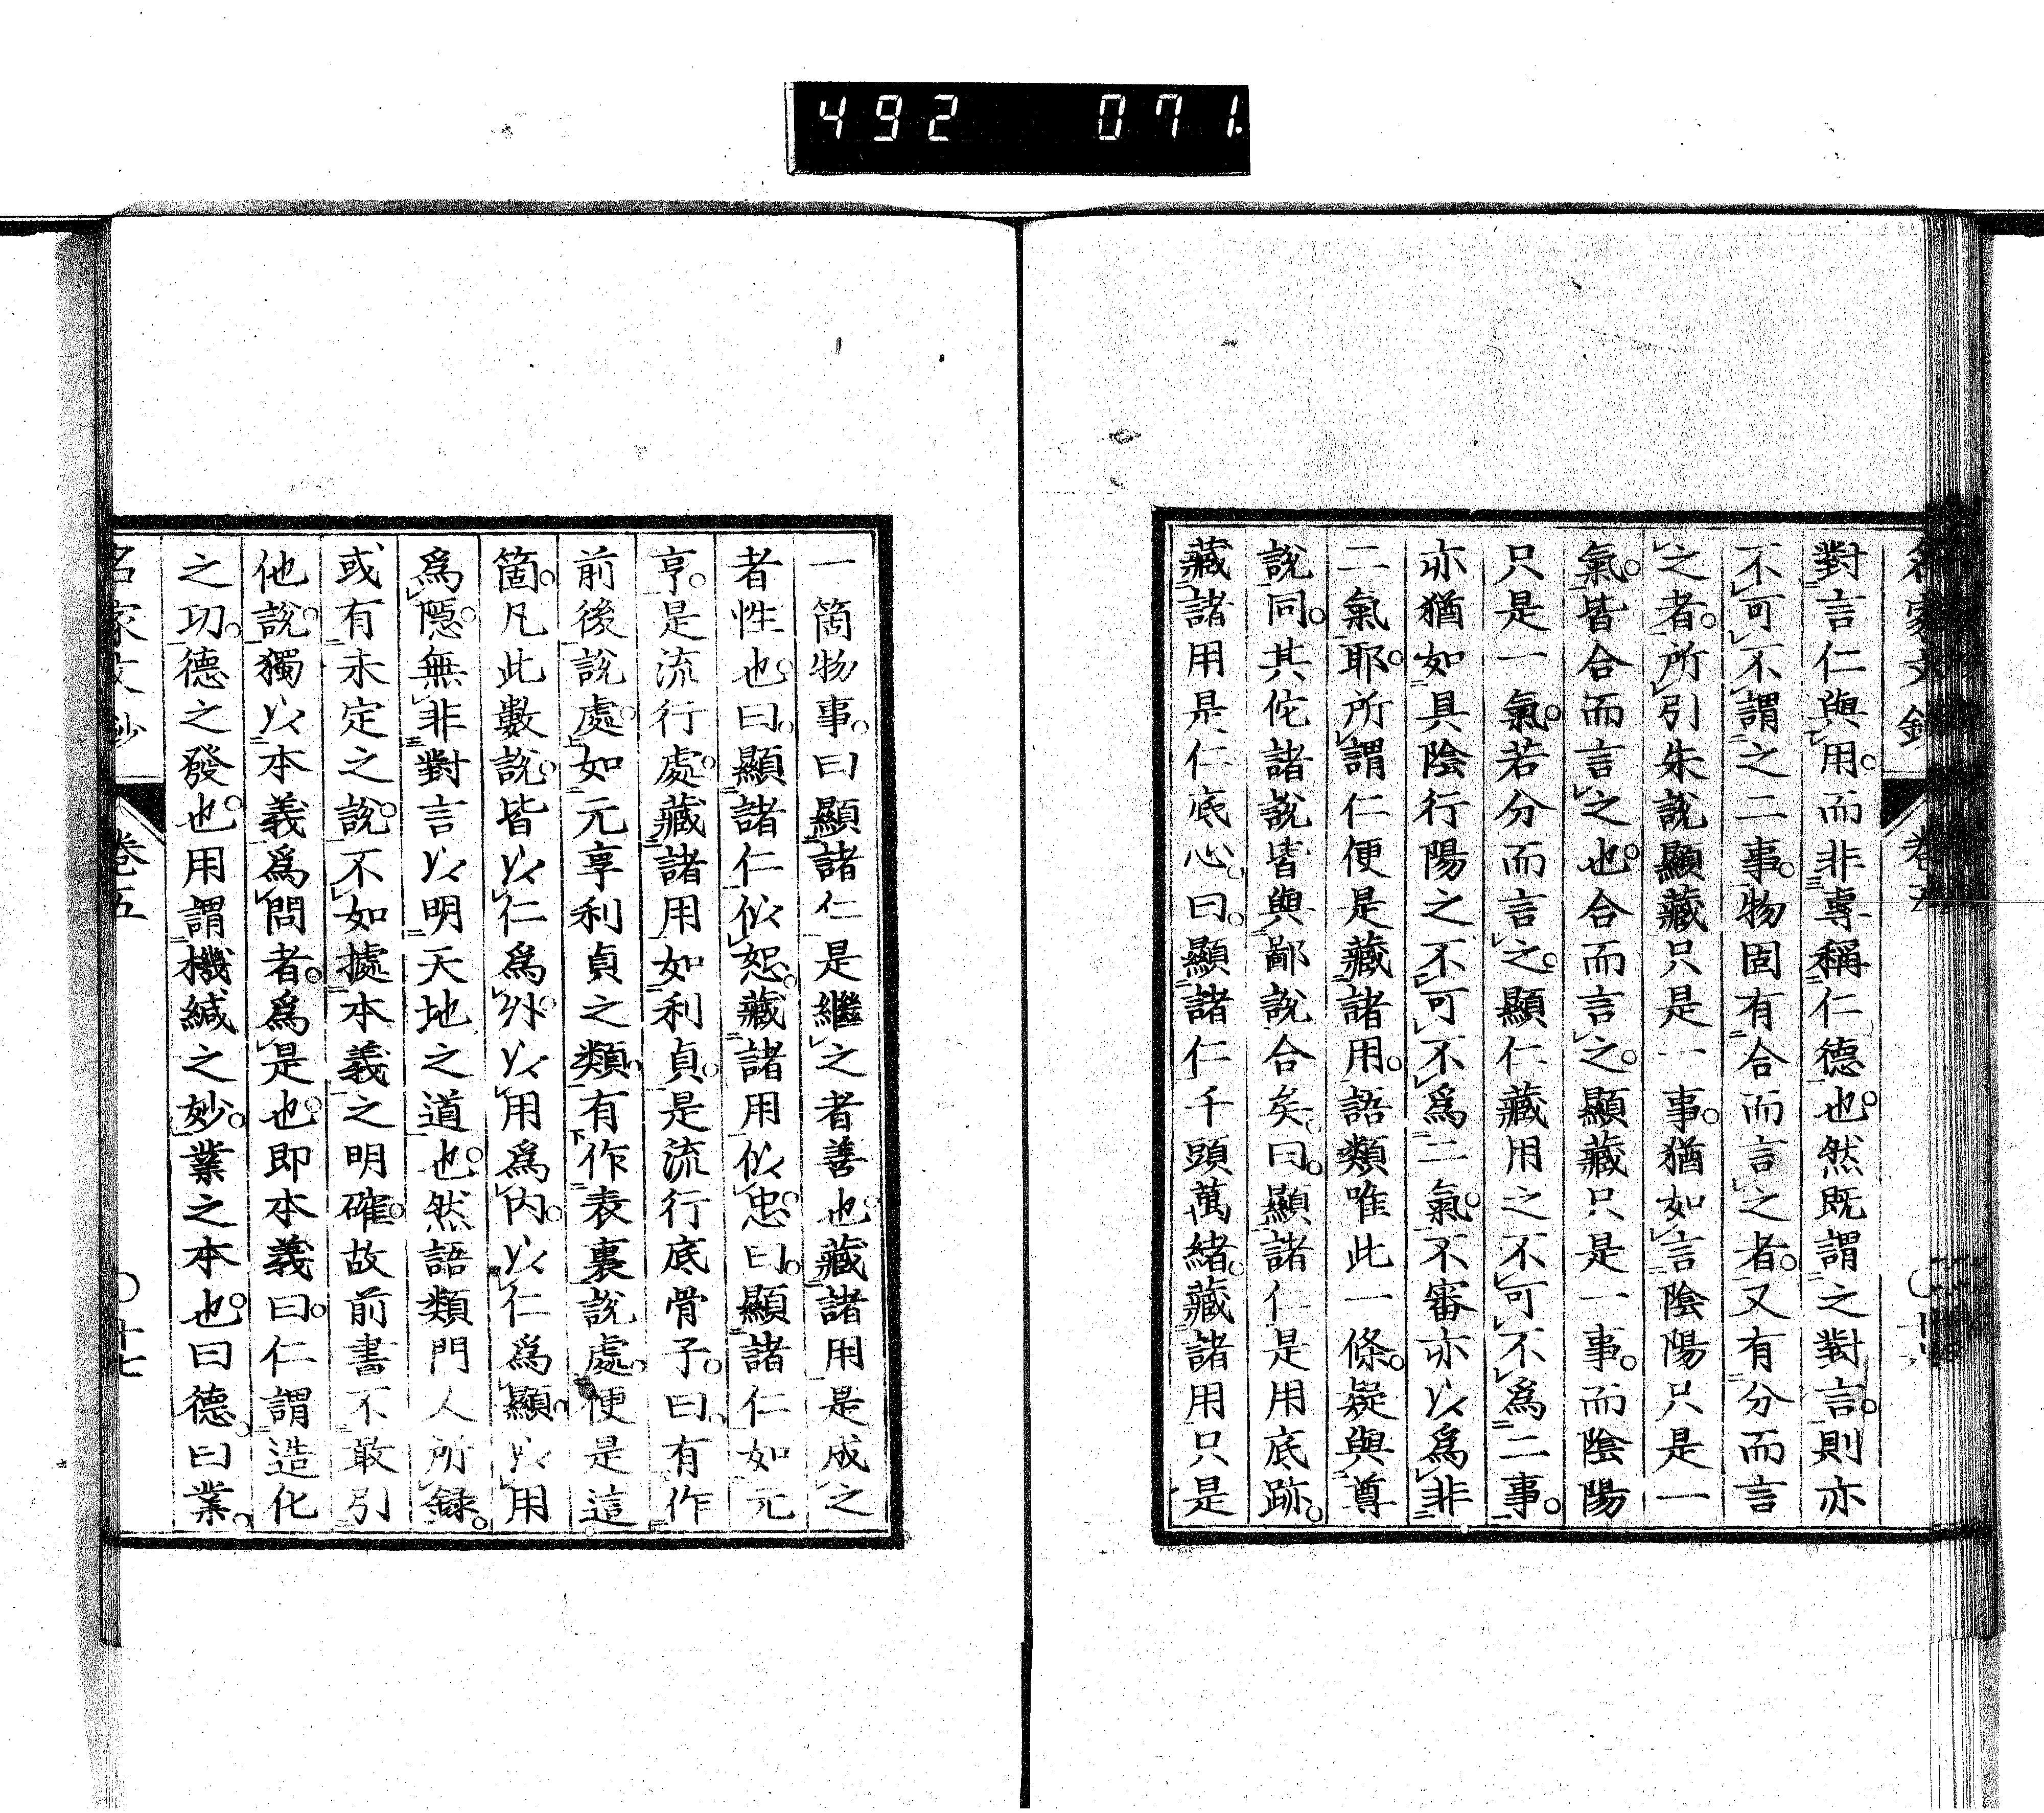 492 071
對言仁與用。而非專稱仁德也。然既謂之對言。則亦
不可不謂之二事。物固有合而言之者。又有分而言
之者。所引朱說顯藏只是一事。猶如言陰陽只是一
氣。皆合而言之也。合而言之。顯藏只是一事。而陰陽
只是一氣。若分而言之。顯仁藏用之不可不爲二事。
亦猶如具陰行陽之不可不爲二氣。不審亦以爲非
二氣耶。所謂仁便是藏諸用。語類唯此一條。疑與尊
說同。其佗諸說皆與鄙說合矣。曰。顯諸仁是用底跡。
藏諸用是仁底心。曰。顯諸仁千頭萬緒。藏諸用只是
一箇物事。曰顯諸仁是繼之者善也。藏諸用是成之
者性也。曰。顯諸仁似恕。藏諸用似忠。曰。顯諸仁如元
亨。是流行處。藏諸用如利貞。是流行底骨子。曰。有作
前後說處。如元享利貞之類。有作表裏說處。便是這
箇。凡此數說。皆以仁爲外。以用爲内。以仁爲顯。以用
爲隱。無非對言以明天地之道也。然語類門人所録。
或有未定之說。不如據本義之明確。故前書不敢引
他說。獨以本義爲問者。爲是也。即本義曰。仁謂造化
之功。德之發也。用謂機緘之妙。業之本也。曰德。曰業。
名家文鈔 卷五 〇十七